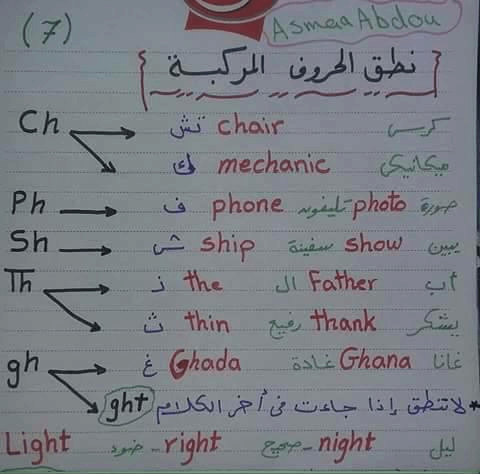 (7) AsmaaAbdou
{ نطق الحروف المركبة }
Ch → تش chair كرسى
→ ك mechanic ميكانيكى
Ph → ف phone تليفون photo صورة
Sh → ش ship سفينة show يبين
Th → ذ the ال Father أب
→ ث thin رفيع thank يشكر
gh → غ Ghada غادة Ghana غانا
→ ght لا تنطق إذا جاءت فى أخر الكلام *
Light ضوء - right صحيح - night ليل